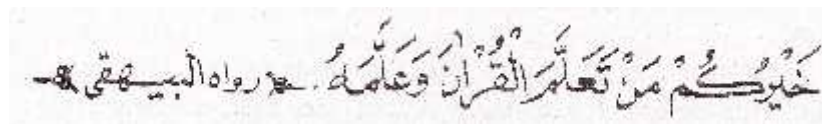 خَيْرُكُمْ مَنْ تَعَلَّمَ الْقُرْاٰنَ وَعَلَّمَهُ. رواه البيهقى